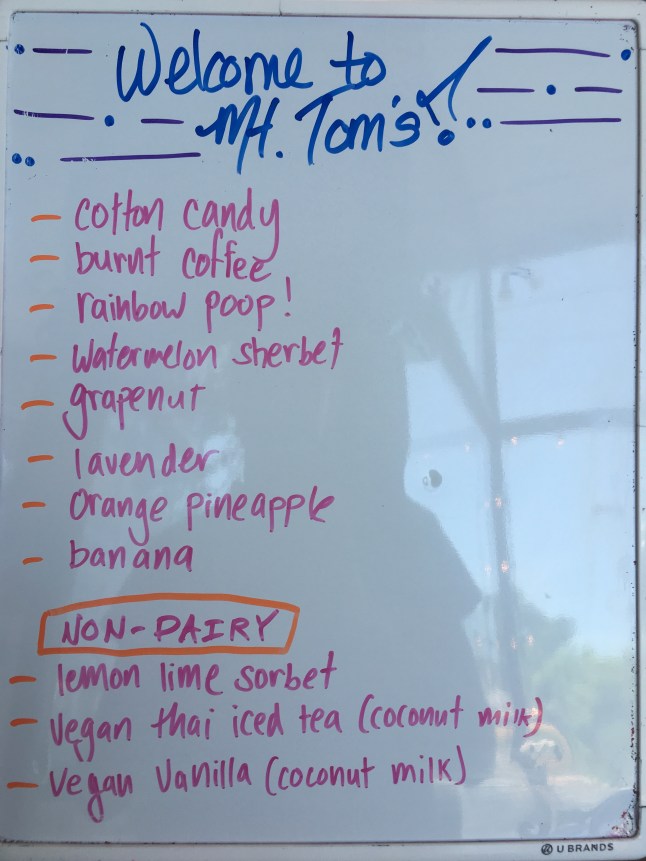 Welcome to
Mt. Tom's!
- cotton candy
- burnt coffee
- rainbow poop!
- watermelon sherbet
- grapenut
- lavender
- orange pineapple
- banana
NON-DAIRY
- lemon lime sorbet
- vegan thai iced tea (coconut milk)
- vegan vanilla (coconut milk)
U BRANDS